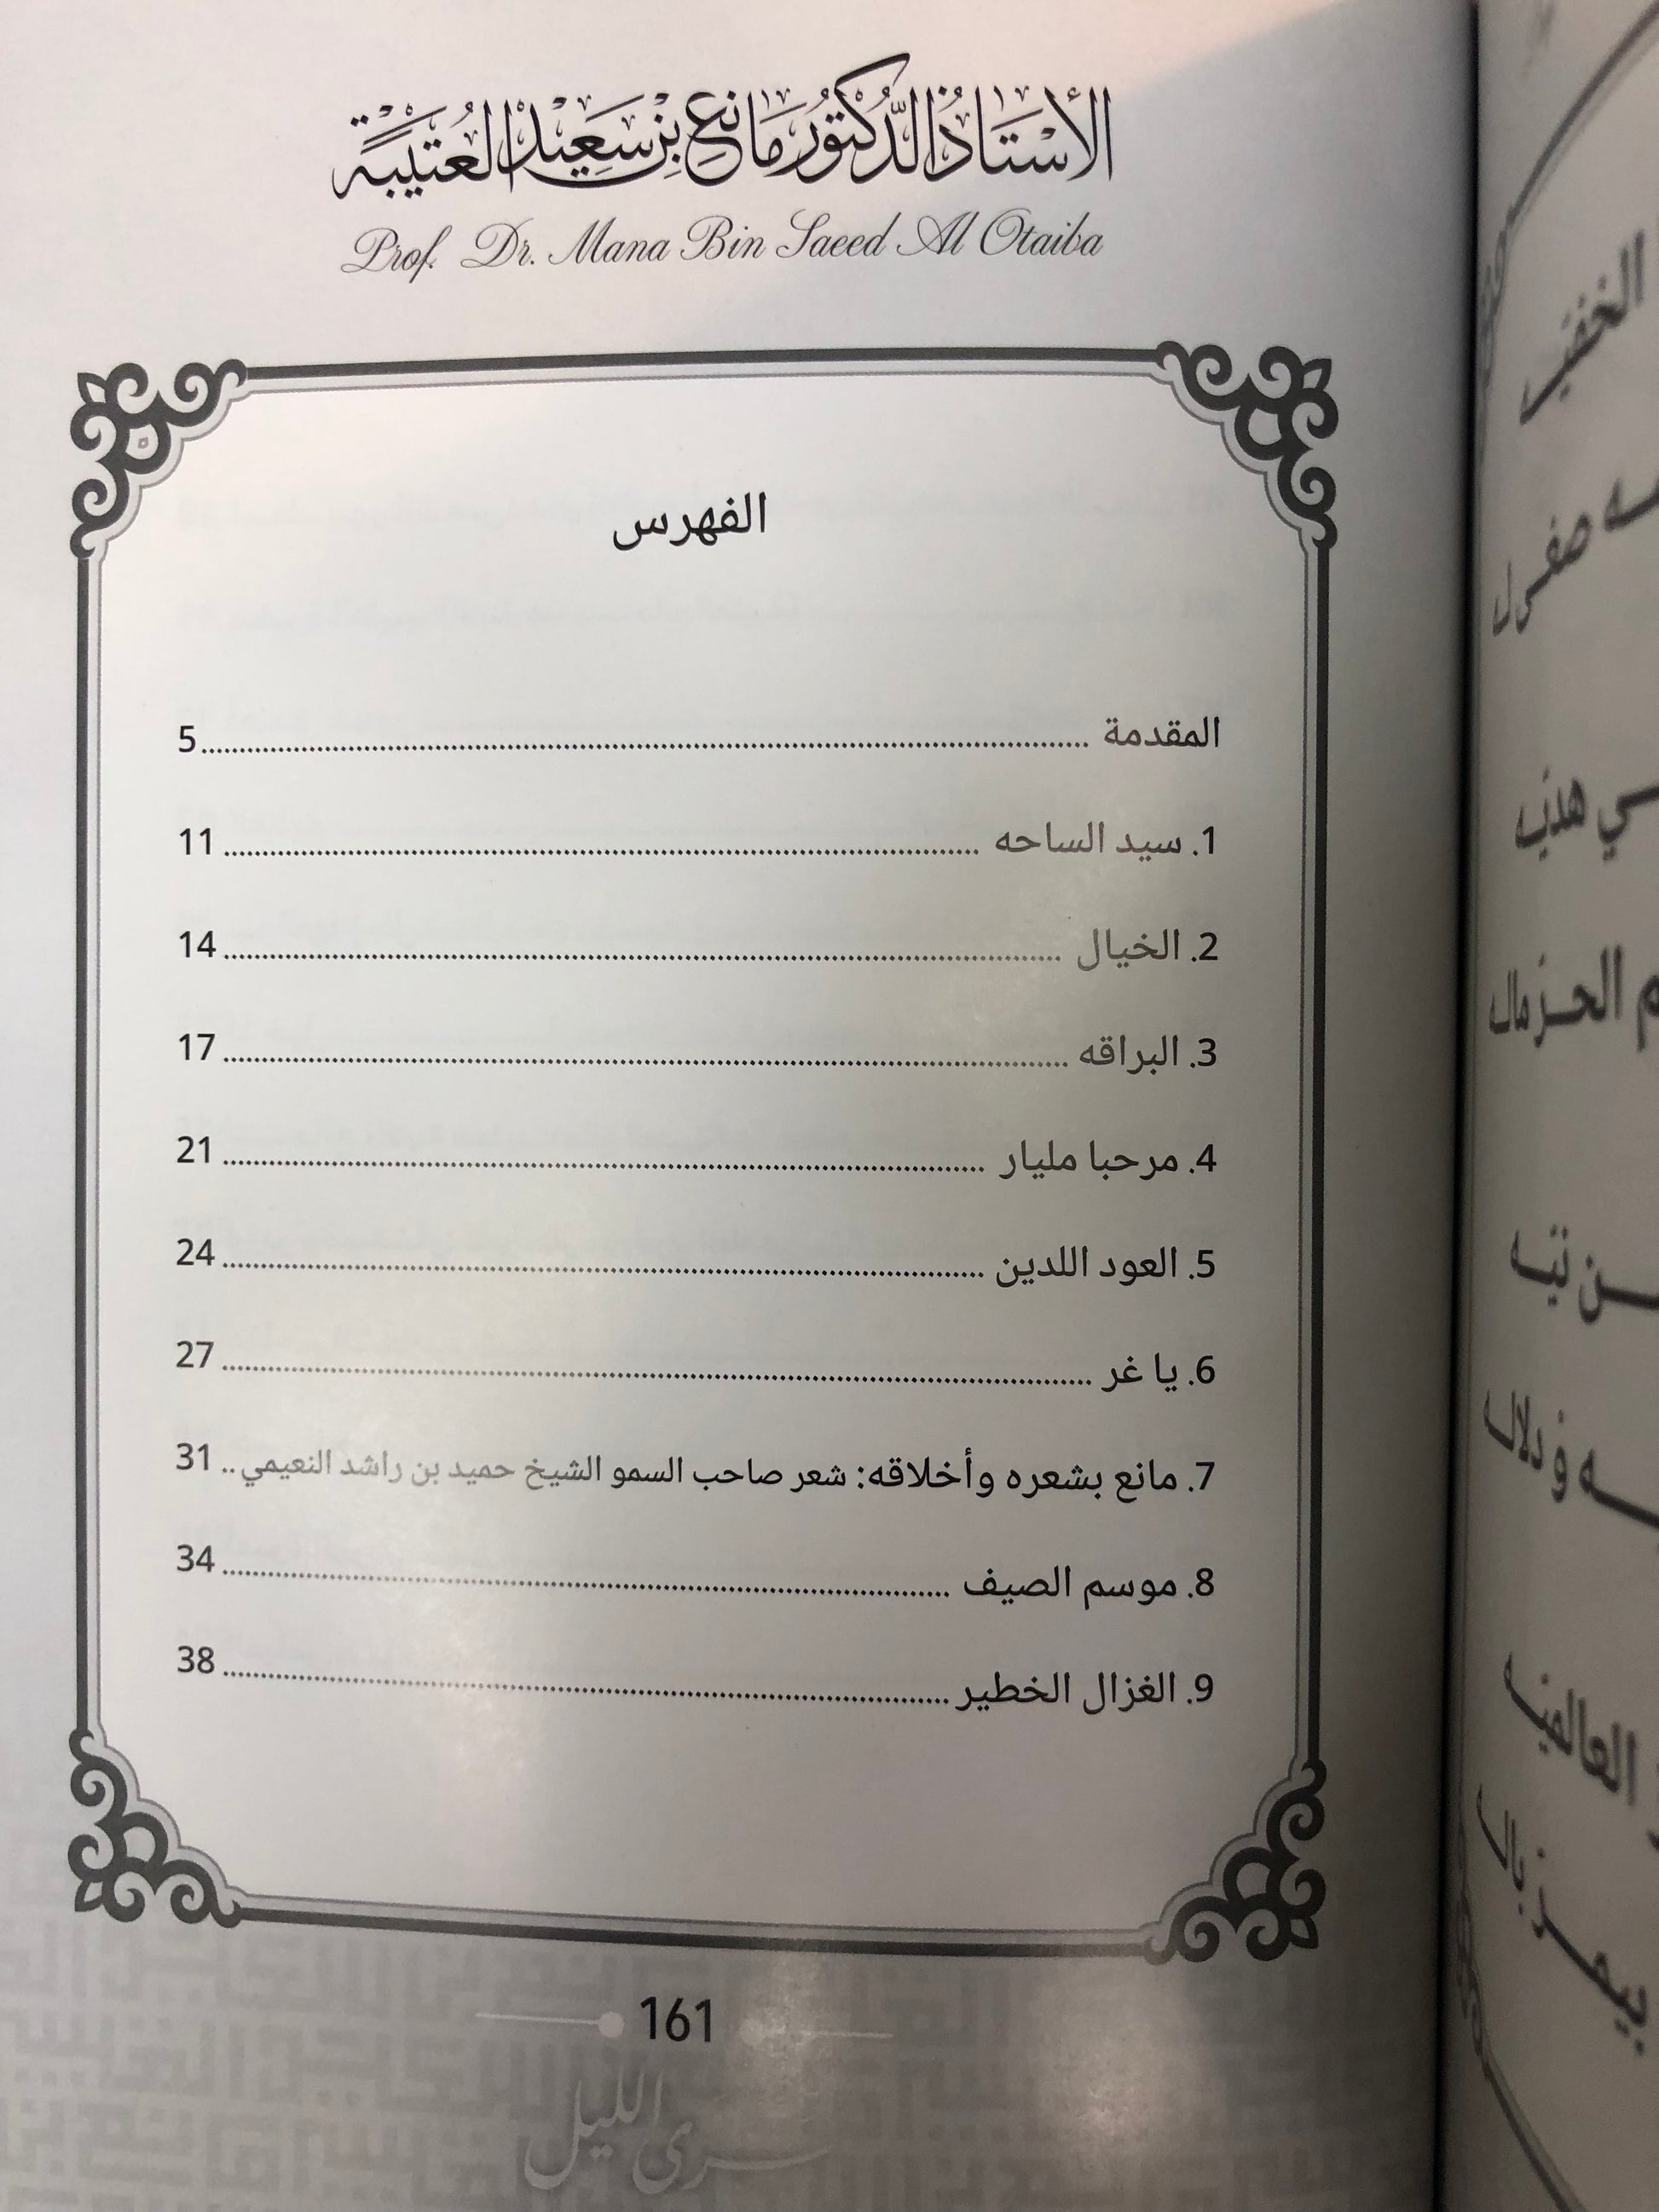 الأستاذ الدكتور مانع بن سعيد العتيبة
Prof. Dr. Mana Bin Saeed Al Otaiba
الفهرس
المقدمة ........ 5
1. سيد الساحه ........ 11
2. الخيال ........ 14
3. البراقه ........ 17
4. مرحبا مليار ........ 21
5. العود اللدين ........ 24
6. يا غر ........ 27
7. مانع بشعره وأخلاقه: شعر صاحب السمو الشيخ حميد بن راشد النعيمي .. 31
8. موسم الصيف ........ 34
9. الغزال الخطير ........ 38
161
سرى الليل